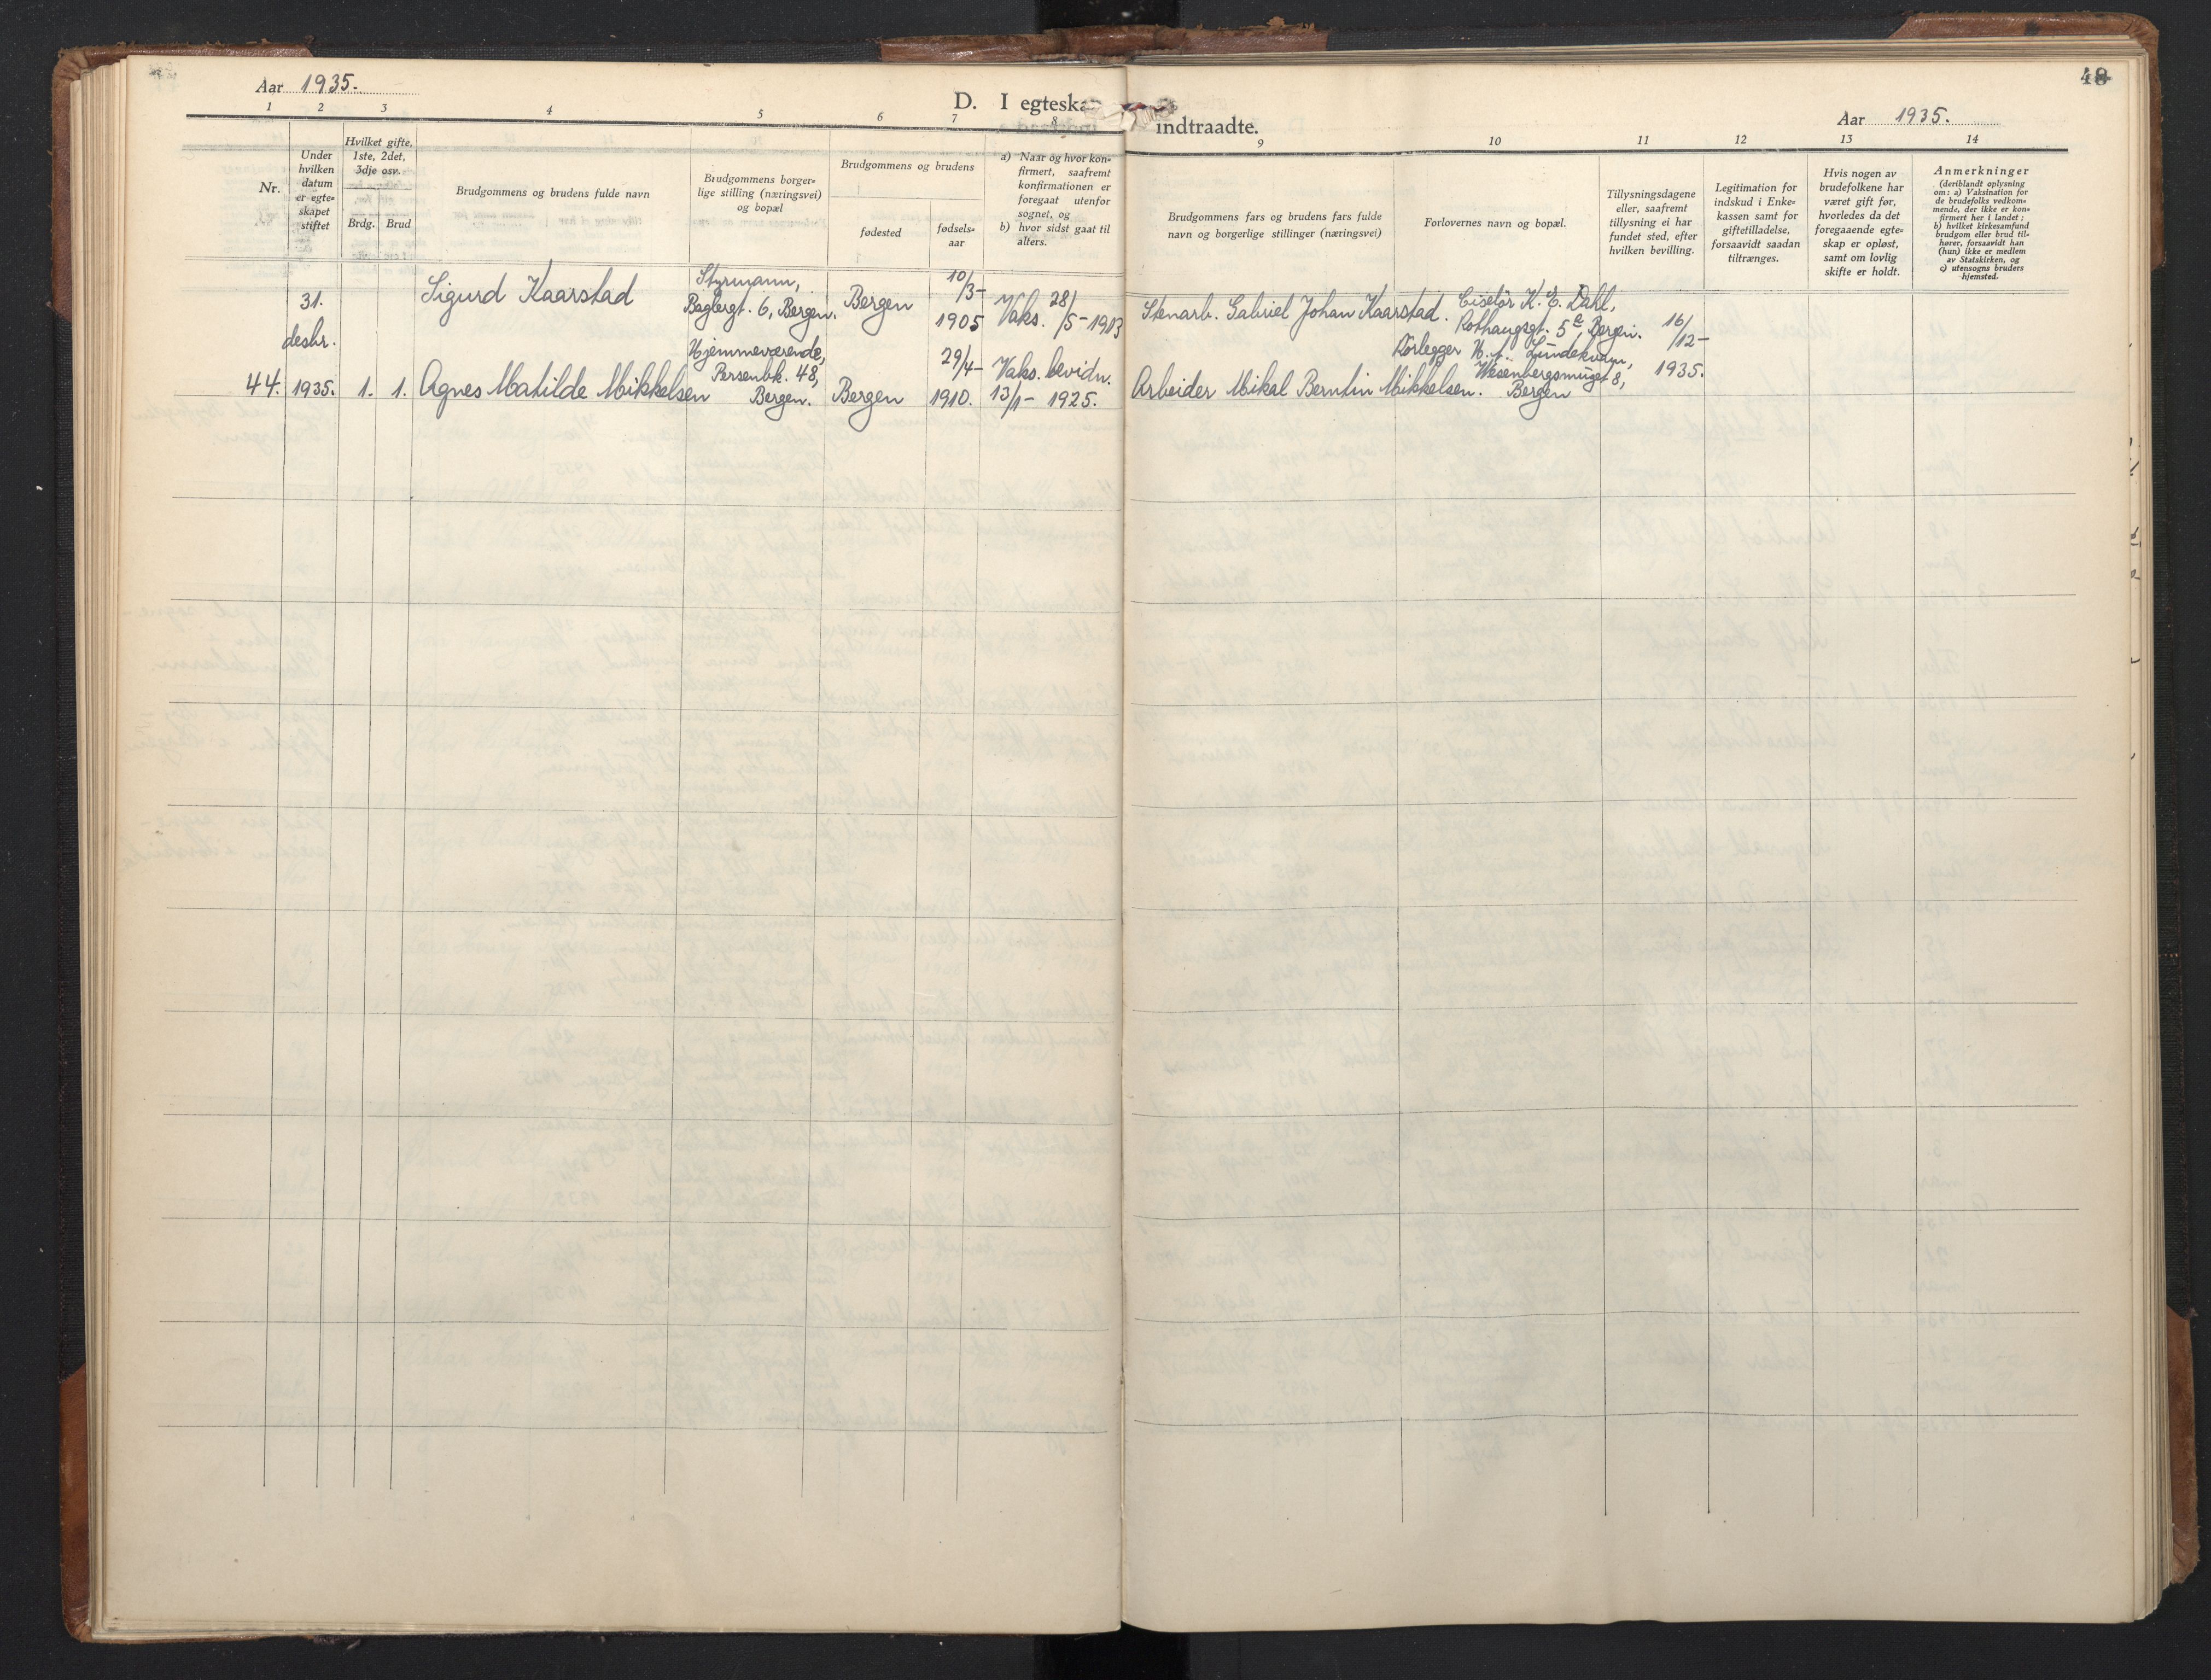 Aar 1935.
D. I egteskap indtraadte.
48
Aar 1935.
1 2 3 4 5 6 7 8 9 10 11 12 13 14
Nr.
Under
hvilken
datum
er egte-
skapet
stiftet
Hvilket gifte,
1ste, 2det,
3dje osv.
Brdg. Brud
Brudgommens og brudens fulde navn
Brudgommens borger-
lige stilling (næringsvei)
og bopæl
Brudgommens og brudens
fødested
fødsels-
aar
a) Naar og hvor kon-
firmert, saafremt
konfirmationen er
foregaat utenfor
sognet, og
b) hvor sidst gaat til
alters.
Brudgommens fars og brudens fars fulde
navn og borgerlige stillinger (næringsvei)
Forlovernes navn og bopæl.
Tillysningsdagene
eller, saafremt
tillysning ei har
fundet sted, efter
hvilken bevilling.
Legitimation for
indskud i Enke-
kassen samt for
giftetilladelse,
forsaavidt saadan
tiltrænges.
Hvis nogen av
brudefolkene har
været gift før,
hvorledes da det
foregaaende egte-
skap er opløst,
samt om lovlig
skifte er holdt.
Anmerkninger
(deriblandt oplysning
om: a) Vaksination for
de brudefolks vedkom-
mende, der ikke er kon-
firmert her i landet;
b) hvilket kirkesamfund
brudgom eller brud til-
hører, forsaavidt han
(hun) ikke er medlem
av Statskirken, og
c) utensogns bruders
hjemsted.
44.
31.
desbr.
1935.
1. 1.
Sigurd Kaarstad
Styrmann,
Baglergt. 6, Bergen.
Bergen
10/3-
1905
Vaks. 28/5-1913
Stenarb. Gabriel Johan Kaarstad.
Ciselør K. E. Dahl,
Rothaugsgt. 5a, Bergen.
16/12-
1935.
Agnes Matilde Mikkelsen
Hjemmeværende,
Persenbk. 48,
Bergen.
Bergen
29/4-
1910.
Vaks. bevidn.
13/1- 1925.
Arbeider Mikal Berntin Mikkelsen.
Rørlegger Lundekvam,
Wesenbergsmuget 8,
Bergen